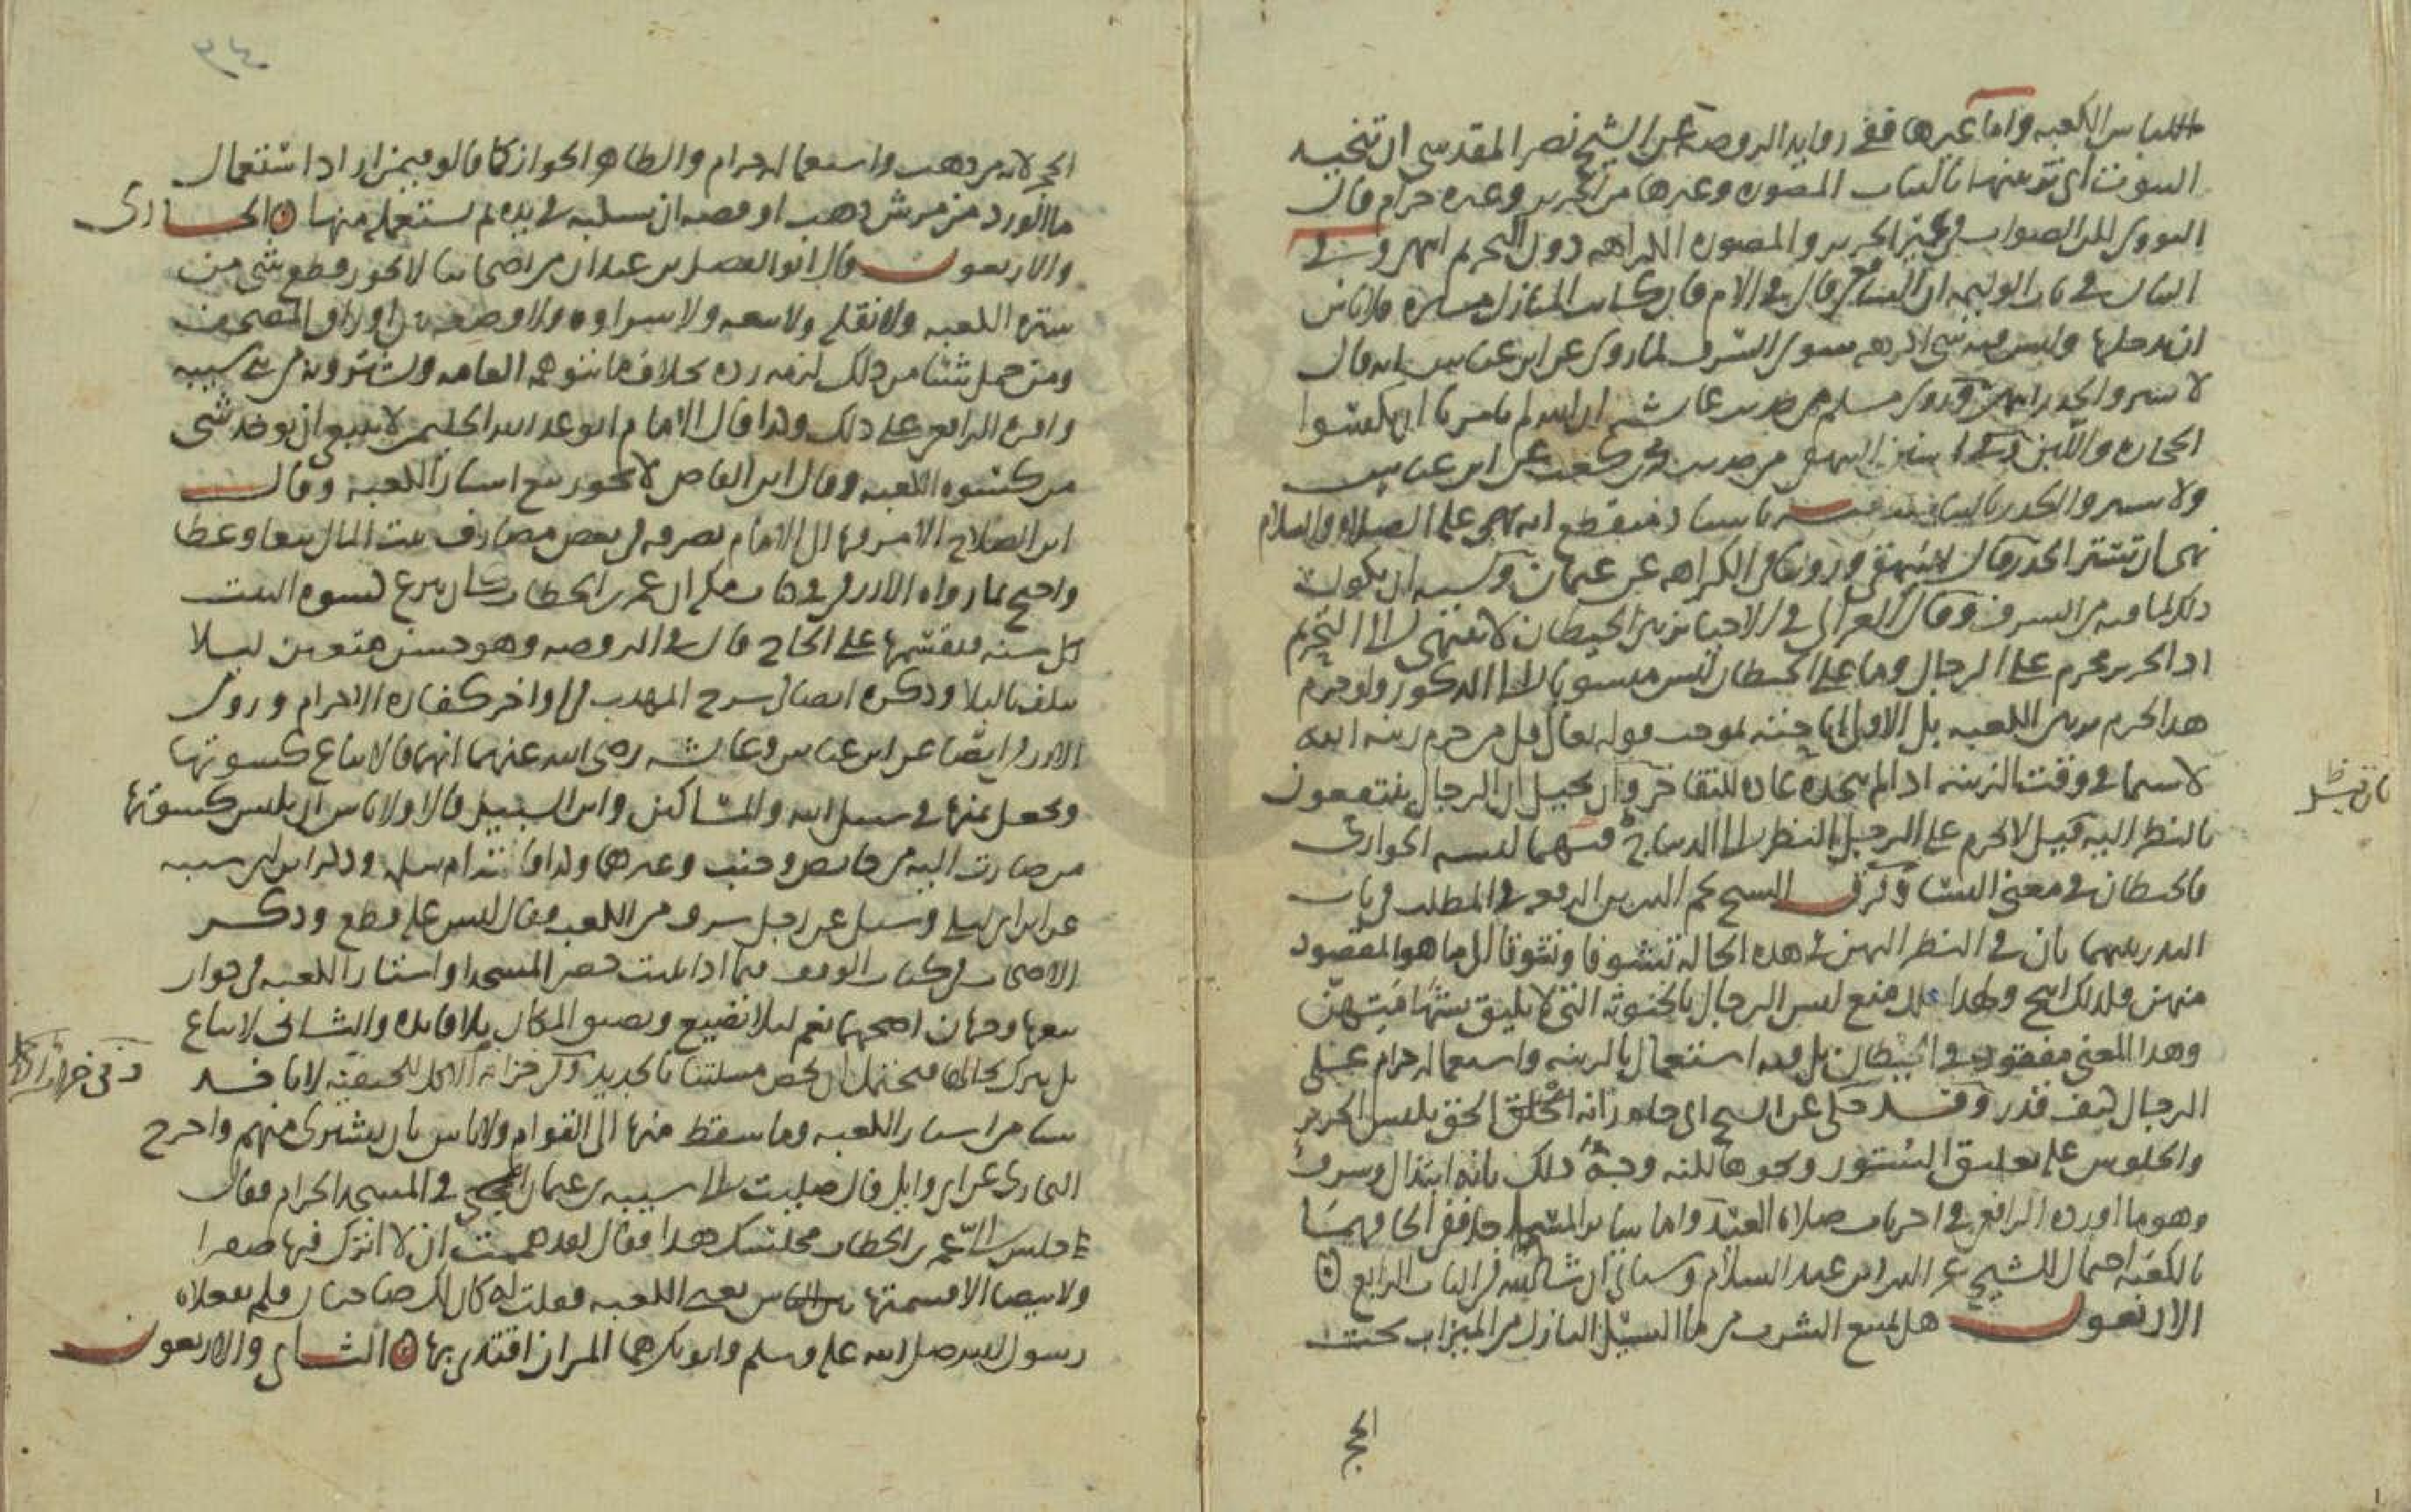 الكعبة واما غيرها ففي زوايد الروضة عن الشيخ نصر المقدسي ان تنجيد
البيوت اي تزيينها بالثياب المصورة وغيرها من الحرير وغيره حرام وقال
النووي الصواب في غير الحرير والمصورة الكراهة دون التحريم انتهى وفي
البيان في باب الوليمة ان الشافعي قال في الام فان كانت المنازل مستترة فلا باس
ان يدخلها وليس فيه شي اكرهه سوى السرف لما روي عن ابن عباس انه قال
لا تستروا الجدر انتهى وروى مسلم من حديث عايشة ان الله لم يامرنا ان نكسوا
الحجارة واللبن وفي سنن البيهقي من حديث محمد بن كعب عن ابن عباس
ولا تستروا الجدر بالثياب باسناد منقطع انه نهى عليه الصلاة والسلام
نهى ان تستر الجدر وقال البيهقي وروينا في الكراهة عن عثمان ويشبه ان يكون
ذلك لما فيه من السرف وقال الغزالي في الاحيا تزيين الحيطان لا ينتهي الى التحريم
اذ الحرير محرم على الرجال وما على الحيطان ليس منسوبا الى الذكور ولو حرم
هذا لحرم تزيين الكعبة بل الاولى اباحته لموجب قوله تعالى قل من حرم زينة الله
لا سيما في وقت الزينة اذا لم يتخذه عادة للتفاخر وان تخيل ان الرجال ينتفعون
بالنظر اليه قيل لا يحرم على الرجل النظر الى الديباج مهما لبسه الجواري
فالحيطان في معنى النسا وفرق الشيخ نجم الدين بن الرفعة في المطلب في باب
بينهما بان في النظر اليهن في هذه الحالة تشوفا وتشوقا الى ما هو المقصود
منهن فلذلك ابيح ولهذا علل منع لبس الرجال بالخنوثة التي لا يليق بشهامتهن
وهذا المعنى مفقود في الحيطان بل فيه استعمال بالزينة واستعماله حرام على
الرجال كيف قدر وقد حكي عن الشيخ ابي حامد انه الحق بلبس الحرير
والجلوس عليه تعليق الستور ونحوها للبنه وجه ذلك بانه ابتذال وسرف
وهو ما اورده الرافعي في اخر باب صلاة العيد واما ساير المساجد ففي الحاقها
بالكعبة احتمال للشيخ عز الدين ابن عبد السلام وسياتي ان شا الله في الباب الرابع
الاربعون هل يمنع الشرب من ما السيل النازل من الميزاب تحت
الحجر
الحجر لانه من ذهب واستعماله حرام والظاهر الجواز كما قالوه فيمن اراد استعمال
ما الورد من مرش ذهب او فضة ان يسكبه في يده ثم يستعمله منها الحادي
والاربعون قال ابو الفضل بن عبدان من اصحابنا لا يجوز قطع شي من
سترة الكعبة ولا نقله ولا بيعه ولا شراوه ولا وضعه بين اوراق المصحف
ومن حمل شيئا من ذلك لزمه رده بخلاف ما تتوهمه العامة ويشترونه من بني شيبة
واقره الرافعي على ذلك وكذا قال الامام ابو عبد الله الحليمي لا ينبغي ان يوخذ شي
من كسوة الكعبة وقال ابن القاص لا يجوز بيع استار الكعبة وقال
ابن الصلاح الامر فيها الى الامام يصرفه في بعض مصارف بيت المال بيعا وعطا
واحتج بما رواه الازرقي في كتاب مكة ان عمر بن الخطاب كان ينزع كسوة البيت
كل سنة فيقسمها على الحاج قال في الروضة وهو حسن متعين ليلا
يتلف بالبلا وذكره ايضا في شرح المهذب في اواخر كفارة الاحرام وروى
الازرقي ايضا عن ابن عباس وعايشة رضي الله عنهما انهما قالا تباع كسوتها
ويجعل ثمنها في سبيل الله والمساكين وابن السبيل قالا ولا باس ان يلبس كسوتها
من صارت اليه من حايض وجنب وغيرهما وكذا قالته ام سلمة وذكر ابن ابي شيبة
عن ابن ابي ليلى وسيل عن رجل سرق من الكعبة فقال ليس عليه قطع وذكر
الاصحاب في كتاب الوقف فيما اذا بليت حصر المسجد او استار الكعبة في جواز
بيعها وجهان اصحهما نعم ليلا تضيع ويضيق المكان بلا فايدة والثاني لا تباع
بل تترك بحالها فيحتمل ان يخص مسلتنا بالجديد وفي خزانة الاكمل للحنفية لا ياخذ
شيا من استار الكعبة وما سقط منها الى القوام ولا باس بان يشترى منهم واخرج
البخاري عن ابي وايل قال جلست الى شيبة بن عثمان في المسجد الحرام فقال
جلس الي عمر بن الخطاب مجلسك هذا فقال لقد هممت ان لا اترك فيها صفرا
ولا بيضا الا قسمتها بين الناس يعني الكعبة فقلت له كان لك صاحبان فلم يفعلاه
رسول الله صلى الله عليه وسلم وابو بكر هما المران اقتدي بهما الثاني والاربعون